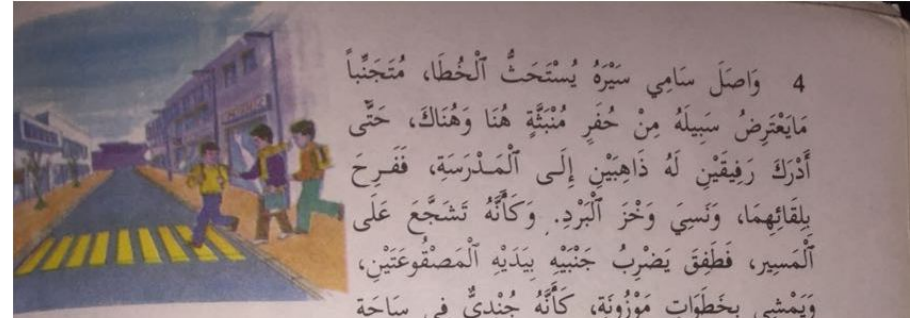 4 وَاصَلَ سَامِي سَيْرَهُ يُسْتَحَثُّ ٱلْخُطَا، مُتَجَنِّباً
مَايَعْتَرِضُ سَبِيلَهُ مِنْ حُفَرٍ مُنْبَثَّةٍ هُنَا وَهُنَاكَ، حَتَّى
أَدْرَكَ رَفِيقَيْنِ لَهُ ذَاهِبَيْنِ إِلَى ٱلْمَدْرَسَةِ، فَفَرِحَ
بِلِقَائِهِمَا، وَنَسِيَ وَخْزَ ٱلْبَرْدِ. وَكَأَنَّهُ تَشَجَّعَ عَلَى
ٱلْمَسِيرِ، فَطَفِقَ يَضْرِبُ جَنْبَيْهِ بِيَدَيْهِ ٱلْمَصْقُوعَتَيْنِ،
وَيَمْشِي بِخَطَوَاتٍ مَوْزُونَةٍ، كَأَنَّهُ جُنْدِيٌّ فِي سَاحَةِ